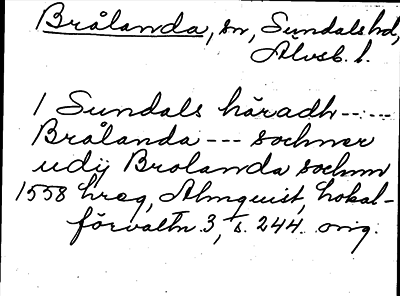 Brålanda, sn, Sundals hd,
Älvsb. l.
I Sundals häradh-----
Brålanda --- sochner
udij Brolanda sochnn
1558 hreg, Almquist, Lokal-
förvaltn 3, s. 244. orig.